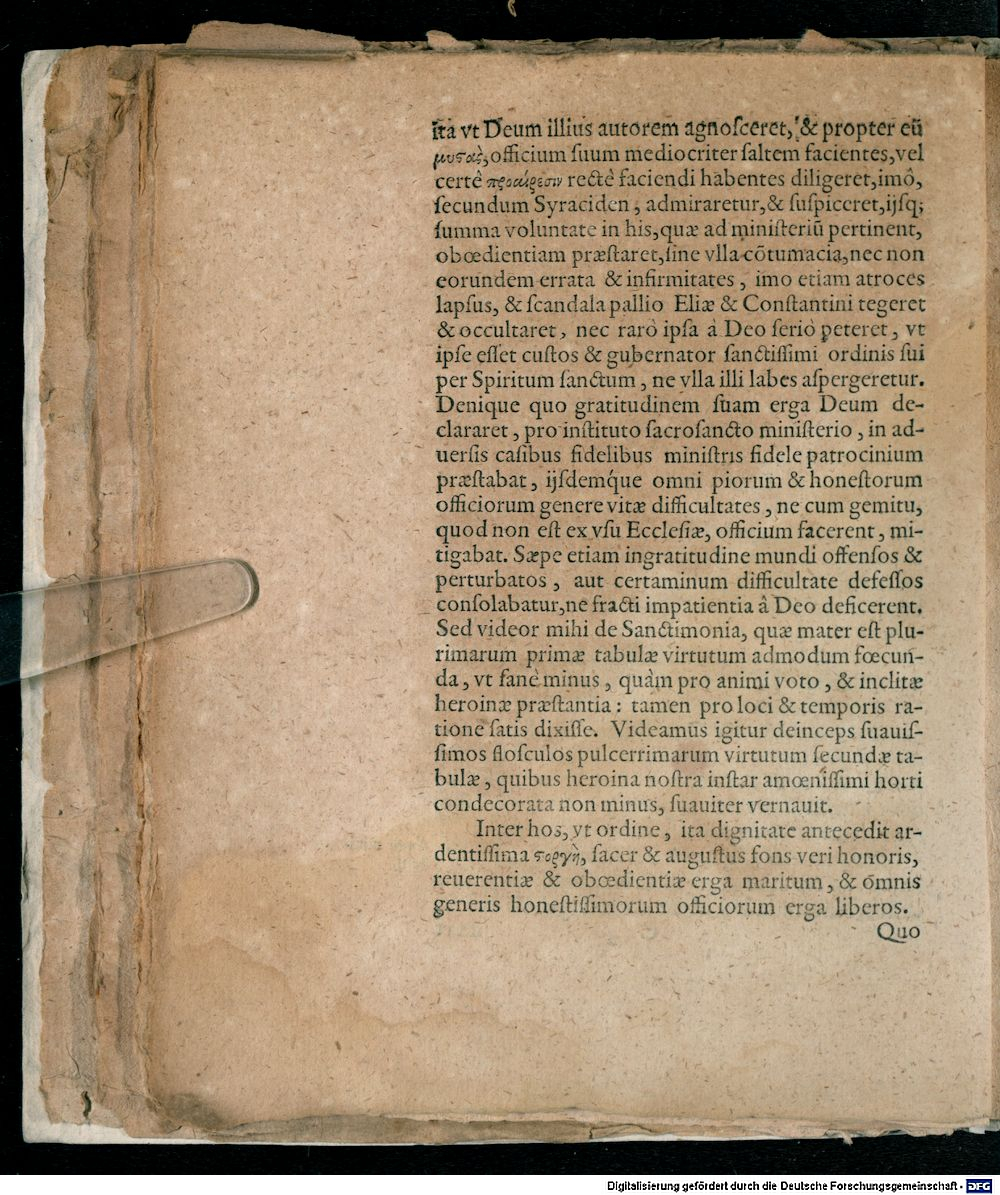 ita vt Deum illius autorem agnoſceret, & propter eũ
μυϛὰς, officium ſuum mediocriter ſaltem facientes, vel
certè προαίρεσιν rectè faciendi habentes diligeret, imô,
ſecundum Syraciden, admiraretur, & ſuſpiceret, ijſq;
ſumma voluntate in his, quæ ad miniſteriũ pertinent,
obœdientiam præſtaret, ſine vlla cõtumacia, nec non
eorundem errata & infirmitates, imo etiam atroces
lapſus, & ſcandala pallio Eliæ & Conſtantini tegeret
& occultaret, nec rarò ipſa à Deo ſeriò peteret, vt
ipſe eſſet cuſtos & gubernator ſanctiſſimi ordinis ſui
per Spiritum ſanctum, ne vlla illi labes aſpergeretur.
Denique quo gratitudinem ſuam erga Deum de-
clararet, pro inſtituto ſacroſancto miniſterio, in ad-
uerſis caſibus fidelibus miniſtris fidele patrocinium
præſtabat, ijſdemq́ue omni piorum & honeſtorum
officiorum genere vitæ difficultates, ne cum gemitu,
quod non eſt ex vſu Eccleſiæ, officium facerent, mi-
tigabat. Sæpe etiam ingratitudine mundi offenſos &
perturbatos, aut certaminum difficultate defeſſos
conſolabatur, ne fracti impatientia â Deo deficerent.
Sed videor mihi de Sanctimonia, quæ mater eſt plu-
rimarum primæ tabulæ virtutum admodum fœcun-
da, vt ſanè minus, quàm pro animi voto, & inclitæ
heroinæ præſtantia: tamen pro loci & temporis ra-
tione ſatis dixiſſe. Videamus igitur deinceps ſuauiſ-
ſimos floſculos pulcerrimarum virtutum ſecundæ ta-
bulæ, quibus heroina noſtra inſtar amœniſſimi horti
condecorata non minus, ſuauiter vernauit.
Inter hos, vt ordine, ita dignitate antecedit ar-
dentiſſima ϛοργὴ, ſacer & auguſtus fons veri honoris,
reuerentiæ & obœdientiæ erga maritum, & omnis
generis honeſtiſſimorum officiorum erga liberos.
Quo
Digitalisierung gefördert durch die Deutsche Forschungsgemeinschaft - DFG